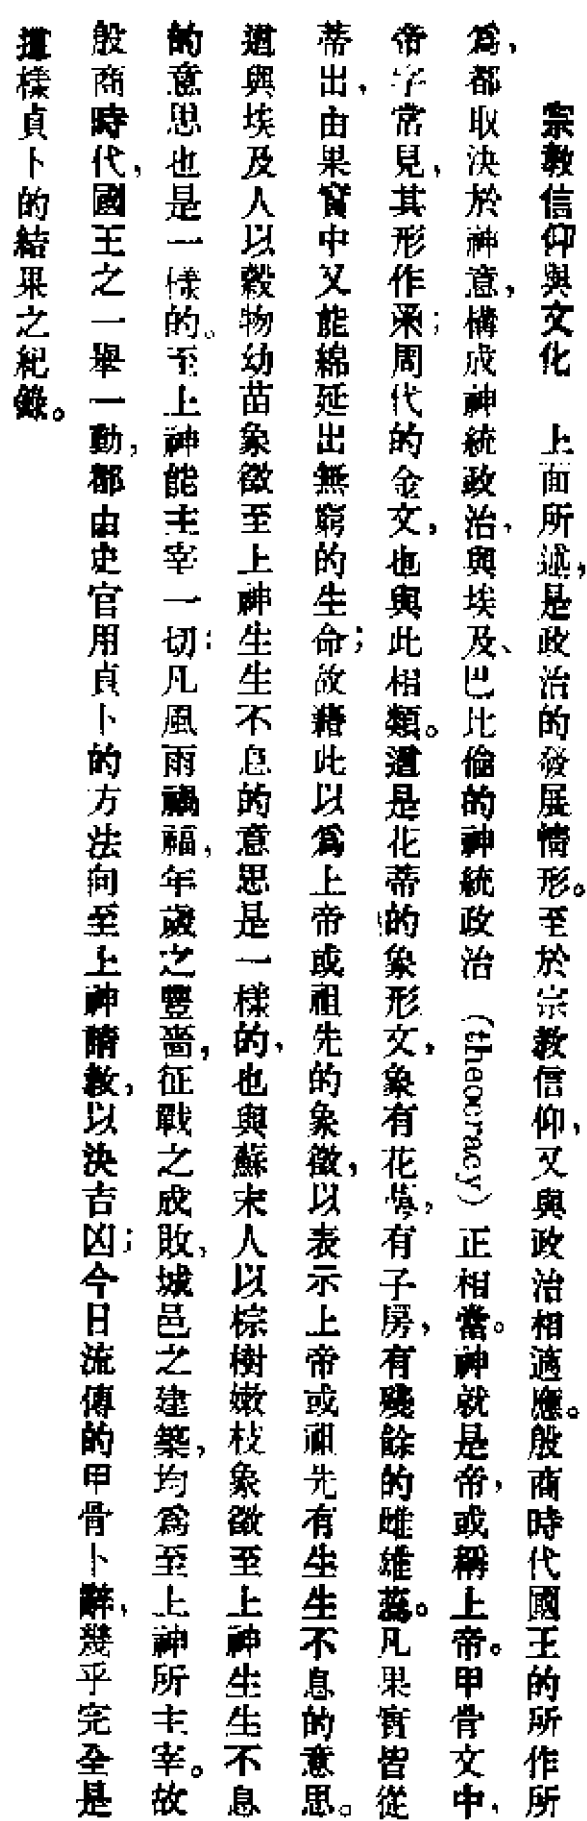 宗教信仰與文化　上面所述，是政治的發展情形。至於宗教信仰，又與政治相適應。殷商時代國王的所作所
爲，都取決於神意，構成神統政治，與埃及、巴比倫的神統政治（theocracy）正相當。神就是帝，或稱上帝。甲骨文中，
帝字常見，其形作；周代的金文，也與此相類。這是花蒂的象形文，象有花萼，有子房，有殘餘的雌雄蕊。凡果實皆從
蒂出，由果實中又能綿延出無窮的生命；故藉此以爲上帝或祖先的象徵，以表示上帝或祖先有生生不息的意思。
這與埃及人以穀物幼苗象徵至上神生生不息的意思是一樣的，也與蘇末人以棕樹嫩枝象徵至上神生生不息
的意思也是一樣的。至上神能主宰一切：凡風雨禍福，年歲之豐嗇，征戰之成敗，城邑之建築，均爲至上神所主宰。故
殷商時代，國王之一舉一動，都由史官用貞卜的方法向至上神請教，以決吉凶；今日流傳的甲骨卜辭，幾乎完全是
這樣貞卜的結果之紀錄。